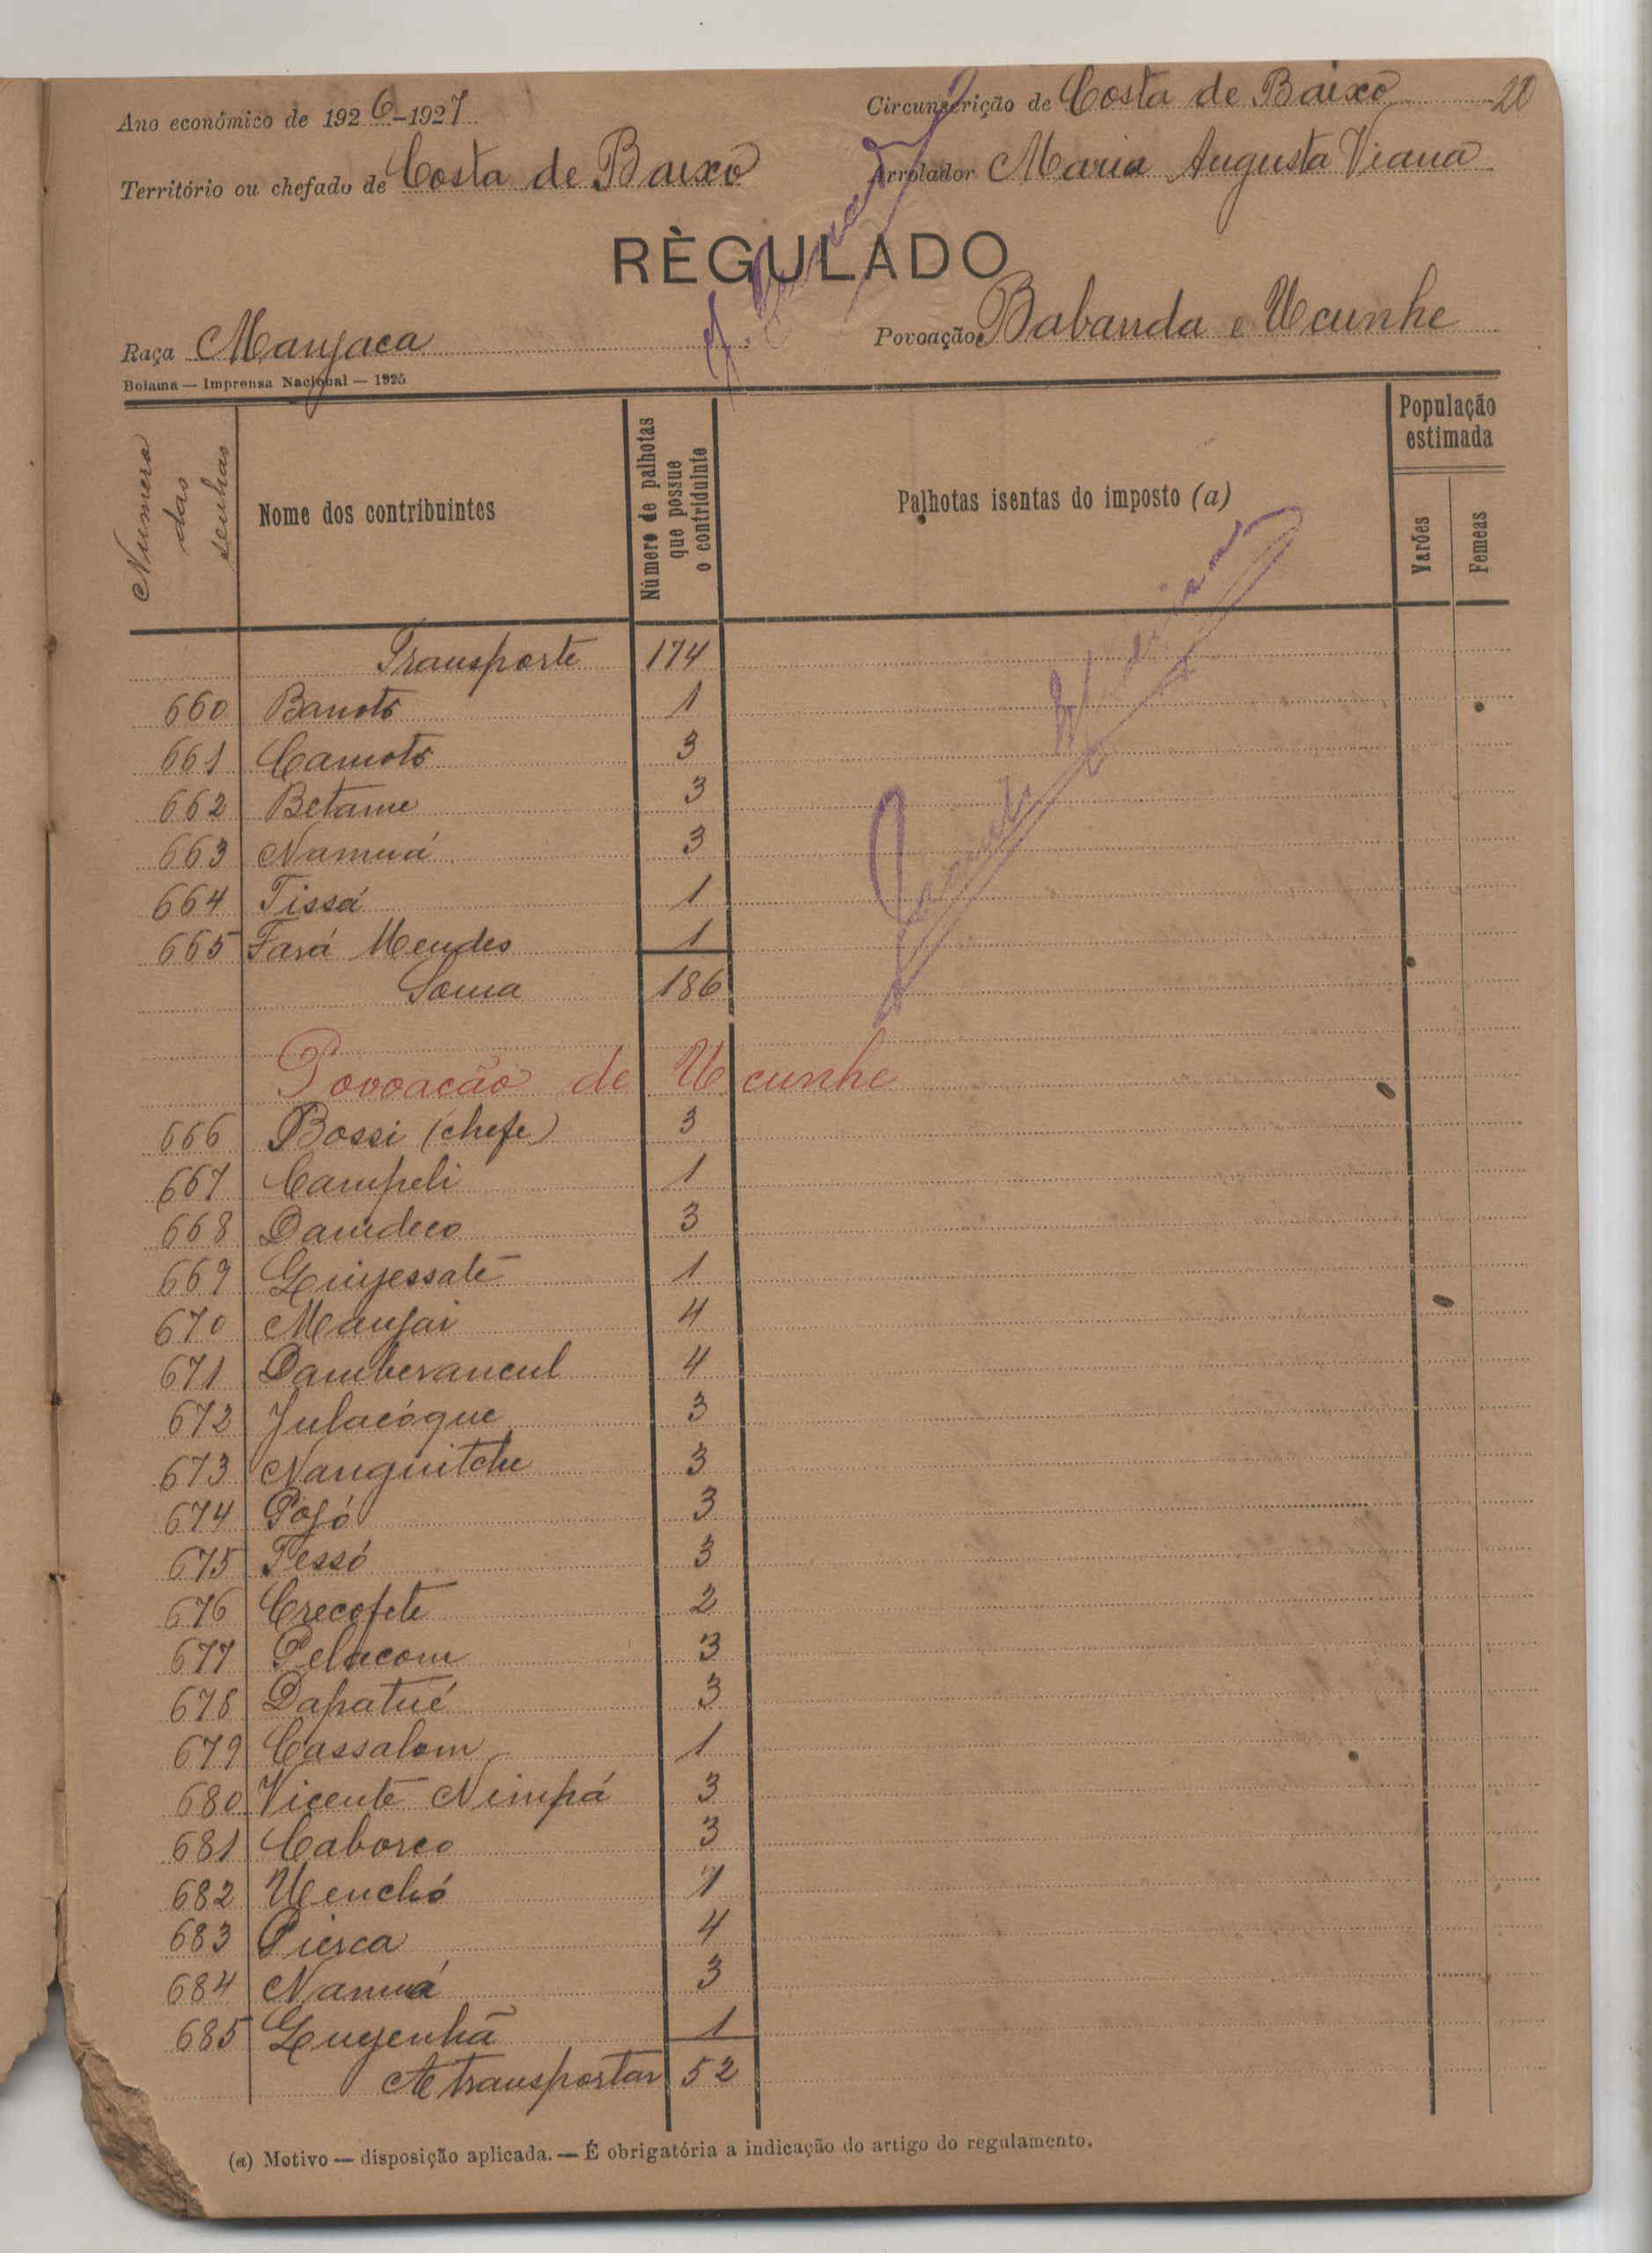 Circunscrição de Costa de Baixo 20
Ano económico de 1926-1927
Território ou chefado de Costa de Baixo Arrolador Maria Augusta Viana
RÈGULADO
Raça Manjaca Povoação Babanda e Ucunhe
Bolama — Imprensa Nacional — 1925
Numero das senhas
Nome dos contribuintes
Número de palhotas que possue o contriduinte
Palhotas isentas do imposto (a)
População estimada
Varões
Femeas
Transporte 174
660 Banoto 1
661 Camoto 3
662 Betame 3
663 Namuá 3
664 Tissá 1
665 Fará Mendes 1
Soma 186
Povoacão de Ucunhe
666 Bossi (chefe) 3
667 Campeli 1
668 Damdeco 3
669 Guiyessate 1
670 Manjai 4
671 Damberancul 4
672 Julacóque 3
673 Nanguitche 3
674 Pojó 3
675 Tessó 3
676 Crecofete 2
677 Pelucom 3
678 Dapatué 3
679 Cassalom 1
680 Vicente Nimpá 3
681 Caborco 3
682 Uenchó 1
683 Pierca 4
684 Namuá 3
685 Guyenhã 1
A transportar 52
(a) Motivo — disposição aplicada. — É obrigatória a indicação do artigo do regulamento.